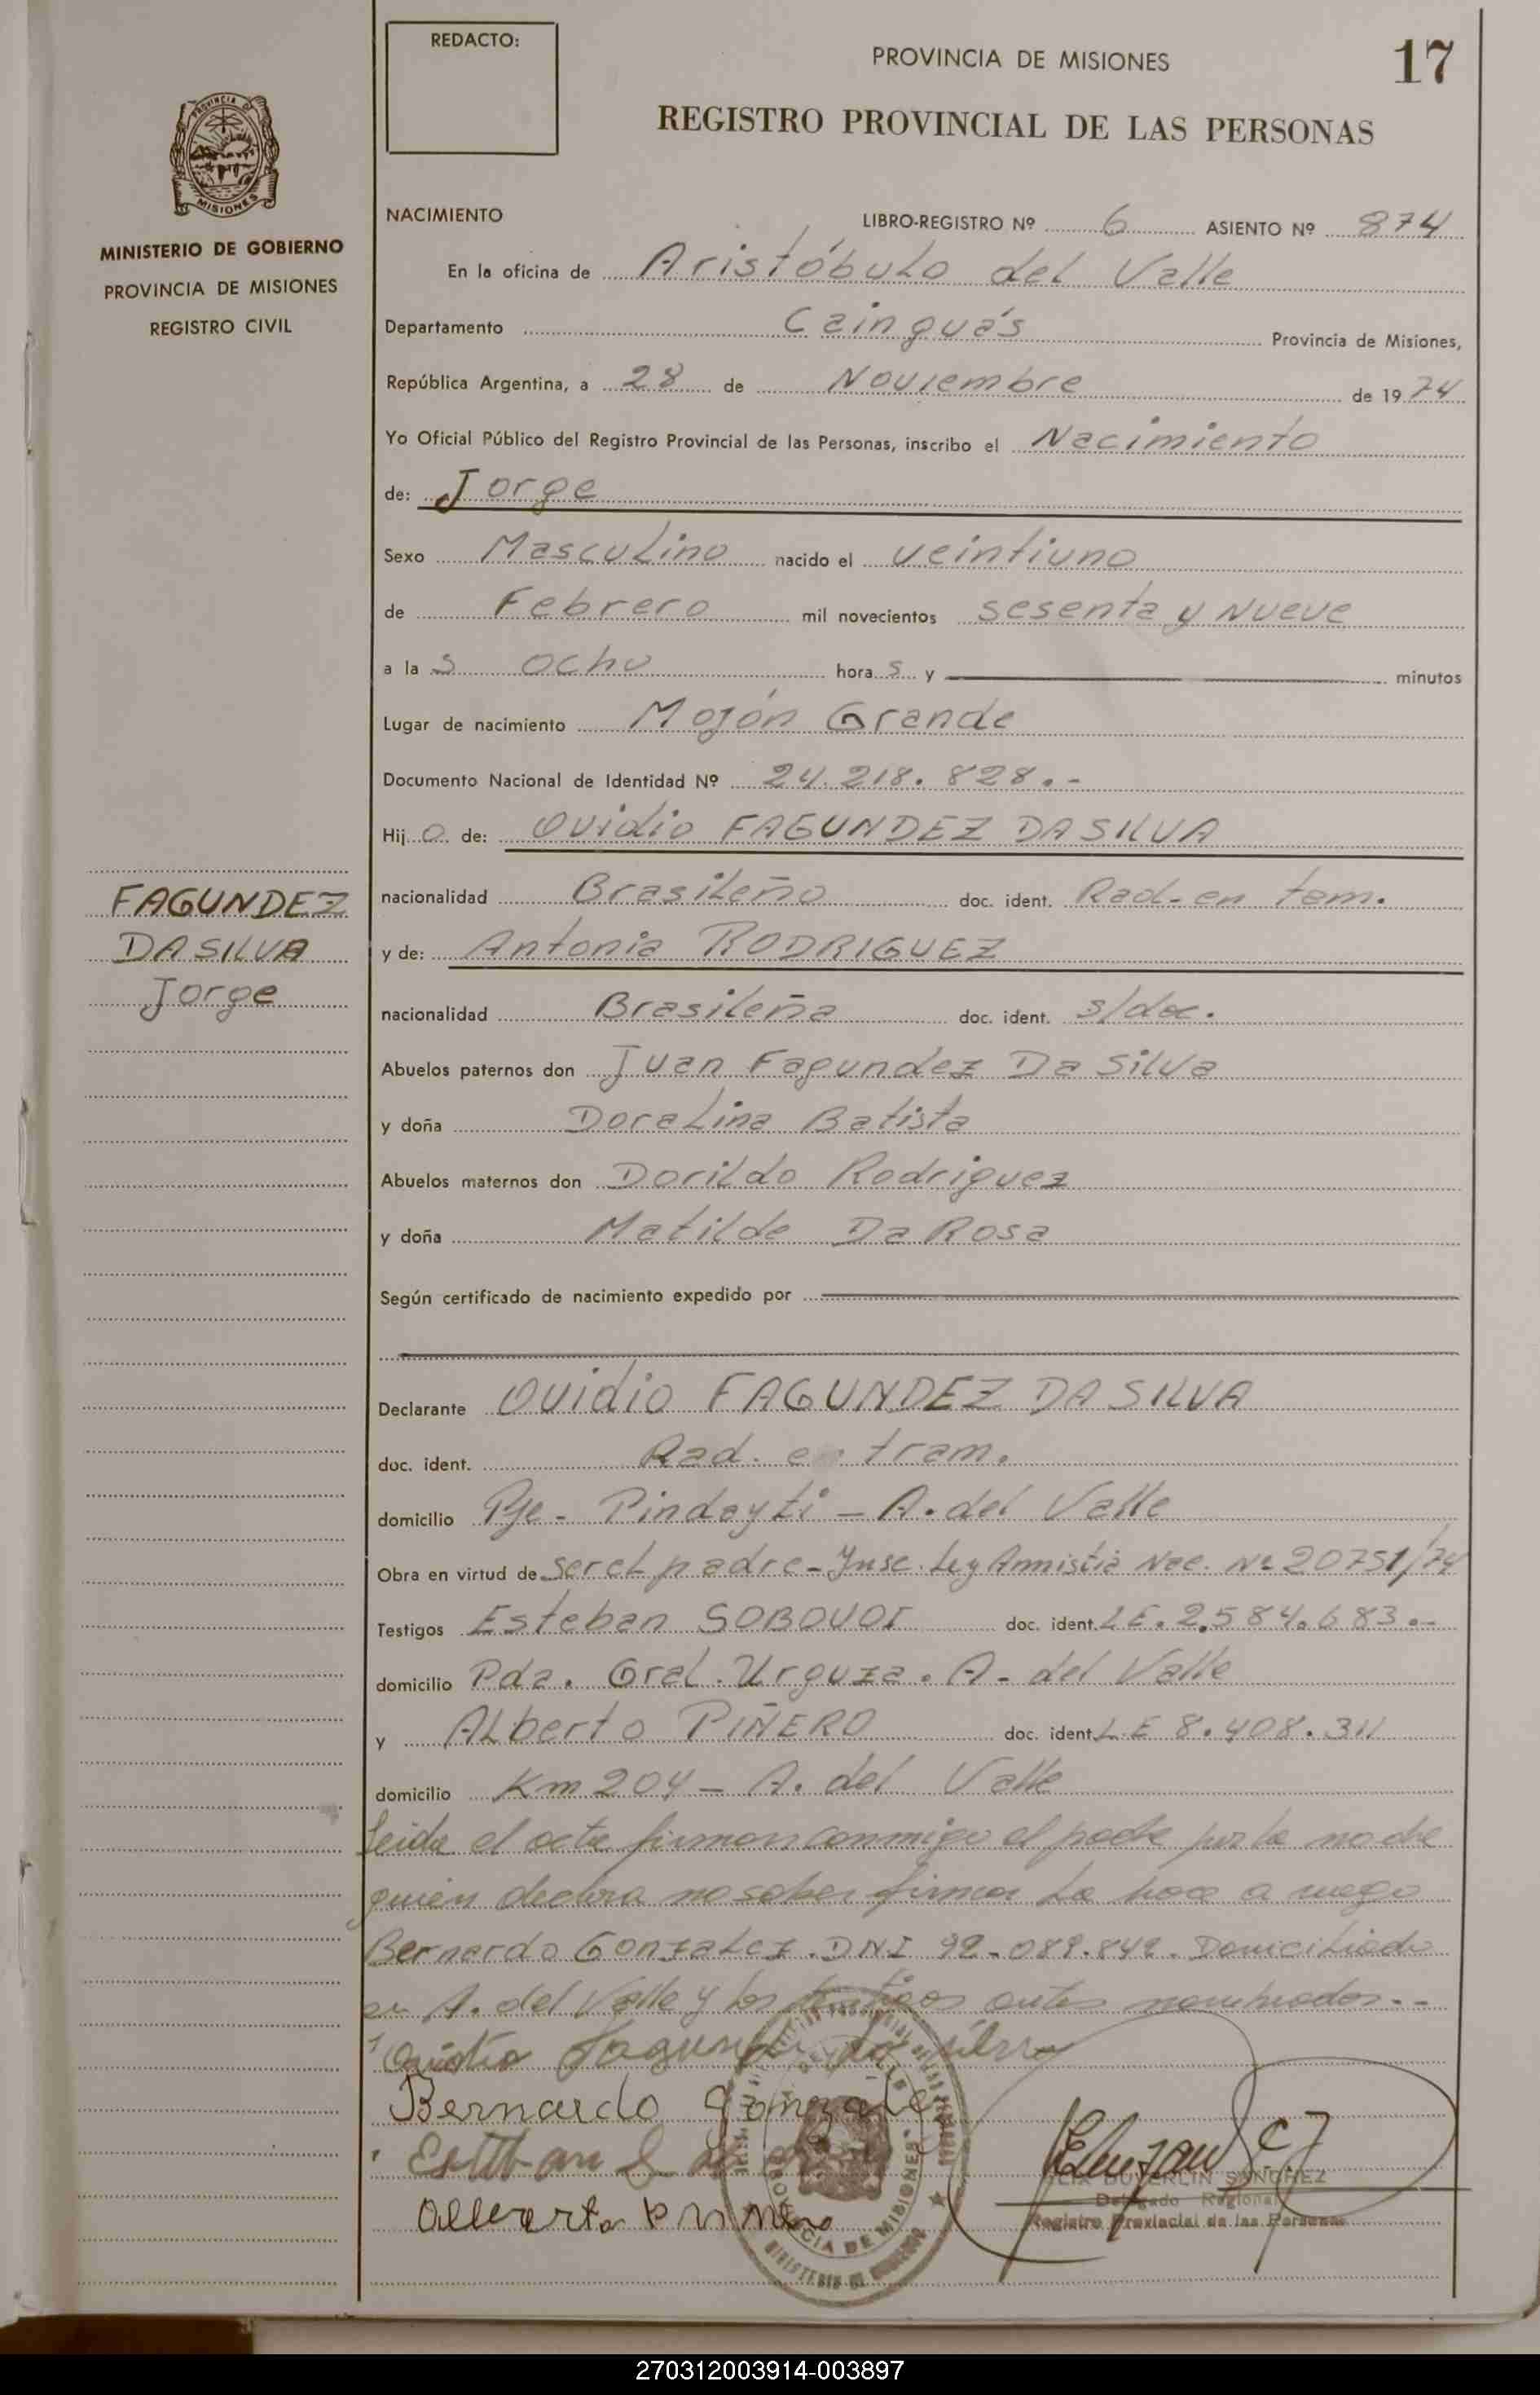 REDACTO:
PROVINCIA DE MISIONES
17
REGISTRO PROVINCIAL DE LAS PERSONAS
PROVINCIA D
MISIONES
MINISTERIO DE GOBIERNO
PROVINCIA DE MISIONES
REGISTRO CIVIL
NACIMIENTO
LIBRO-REGISTRO Nº 6 ASIENTO Nº 874
En la oficina de Aristóbulo del Valle
Departamento Cainguás Provincia de Misiones,
República Argentina, a 28 de Noviembre de 1974
Yo Oficial Público del Registro Provincial de las Personas, inscribo el Nacimiento
de: Jorge
Sexo Masculino nacido el veintiuno
de Febrero mil novecientos sesenta y Nueve
a la s ocho hora s y minutos
Lugar de nacimiento Mojón Grande
Documento Nacional de Identidad Nº 24.218.828.-
Hij o de: Ovidio FAGUNDEZ DA SILVA
FAGUNDEZ
DA SILVA
Jorge
nacionalidad Brasileño doc. ident. Rad. en tam.
y de: Antonia RODRIGUEZ
nacionalidad Brasileña doc. ident. s/doc.
Abuelos paternos don Juan Fagundez Da Silva
y doña Doralina Batista
Abuelos maternos don Dorildo Rodriguez
y doña Matilde Da Rosa
Según certificado de nacimiento expedido por
Declarante Ovidio FAGUNDEZ DA SILVA
doc. ident. Rad. en tram.
domicilio Pje - Pindayti - A. del Valle
Obra en virtud de ser el padre - Insc. Ley Amnistia Nac. Nº 20751/74
Testigos Esteban SOBOVOI doc. ident. L E. 2.584.683.-
domicilio Pda. Gral. Urquza. A. del Valle
y Alberto PIÑERO doc. ident. L E 8.408.311
domicilio Km 204 - A. del Valle
Leida el acta firman conmigo el padre por la madre
quien declara no saber firmar lo hace a ruego
Bernardo Gonzalez. DNI 92.089.842. Domiciliado
en A. del Valle y los testigos antes nombrados.--
Ovidio Fagundez da silva
Bernardo Gonzalez
Esteban
Alberto
SANCHEZ
Delegado Regional
Registro Provincial de las Personas
PROVINCIA DE MISIONES
270312003914-003897